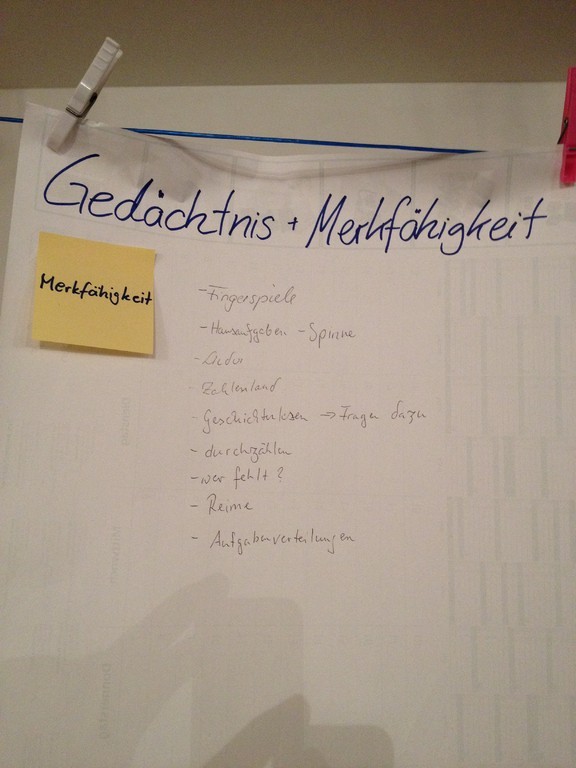 Gedächtnis + Merkfähigkeit
Merkfähigkeit
- Fingerspiele
- Hausaufgaben - Spinne
- Lieder
- Zahlenland
- Geschichtenlesen → Fragen dazu
- durchzählen
- wer fehlt?
- Reime
- Aufgabenverteilungen